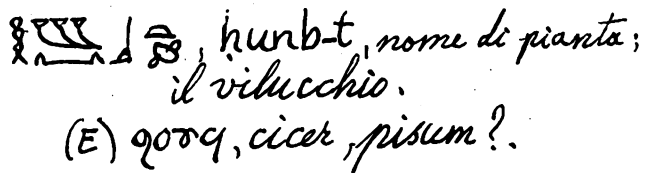 , ḣunb-t, nome di pianta;
il vilucchio.
(E) , cicer, pisum?.